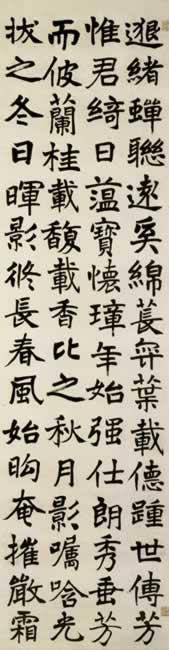 遐緒蟬聯遠矣綿萇弈葉載德踵世傳芳
惟君綺日蘊寶懷璋年始强仕朗秀垂芳
而彼蘭桂載馥載香比之秋月影囑唅光
拔之冬日暉影脩長春風始昫奄摧嚴霜